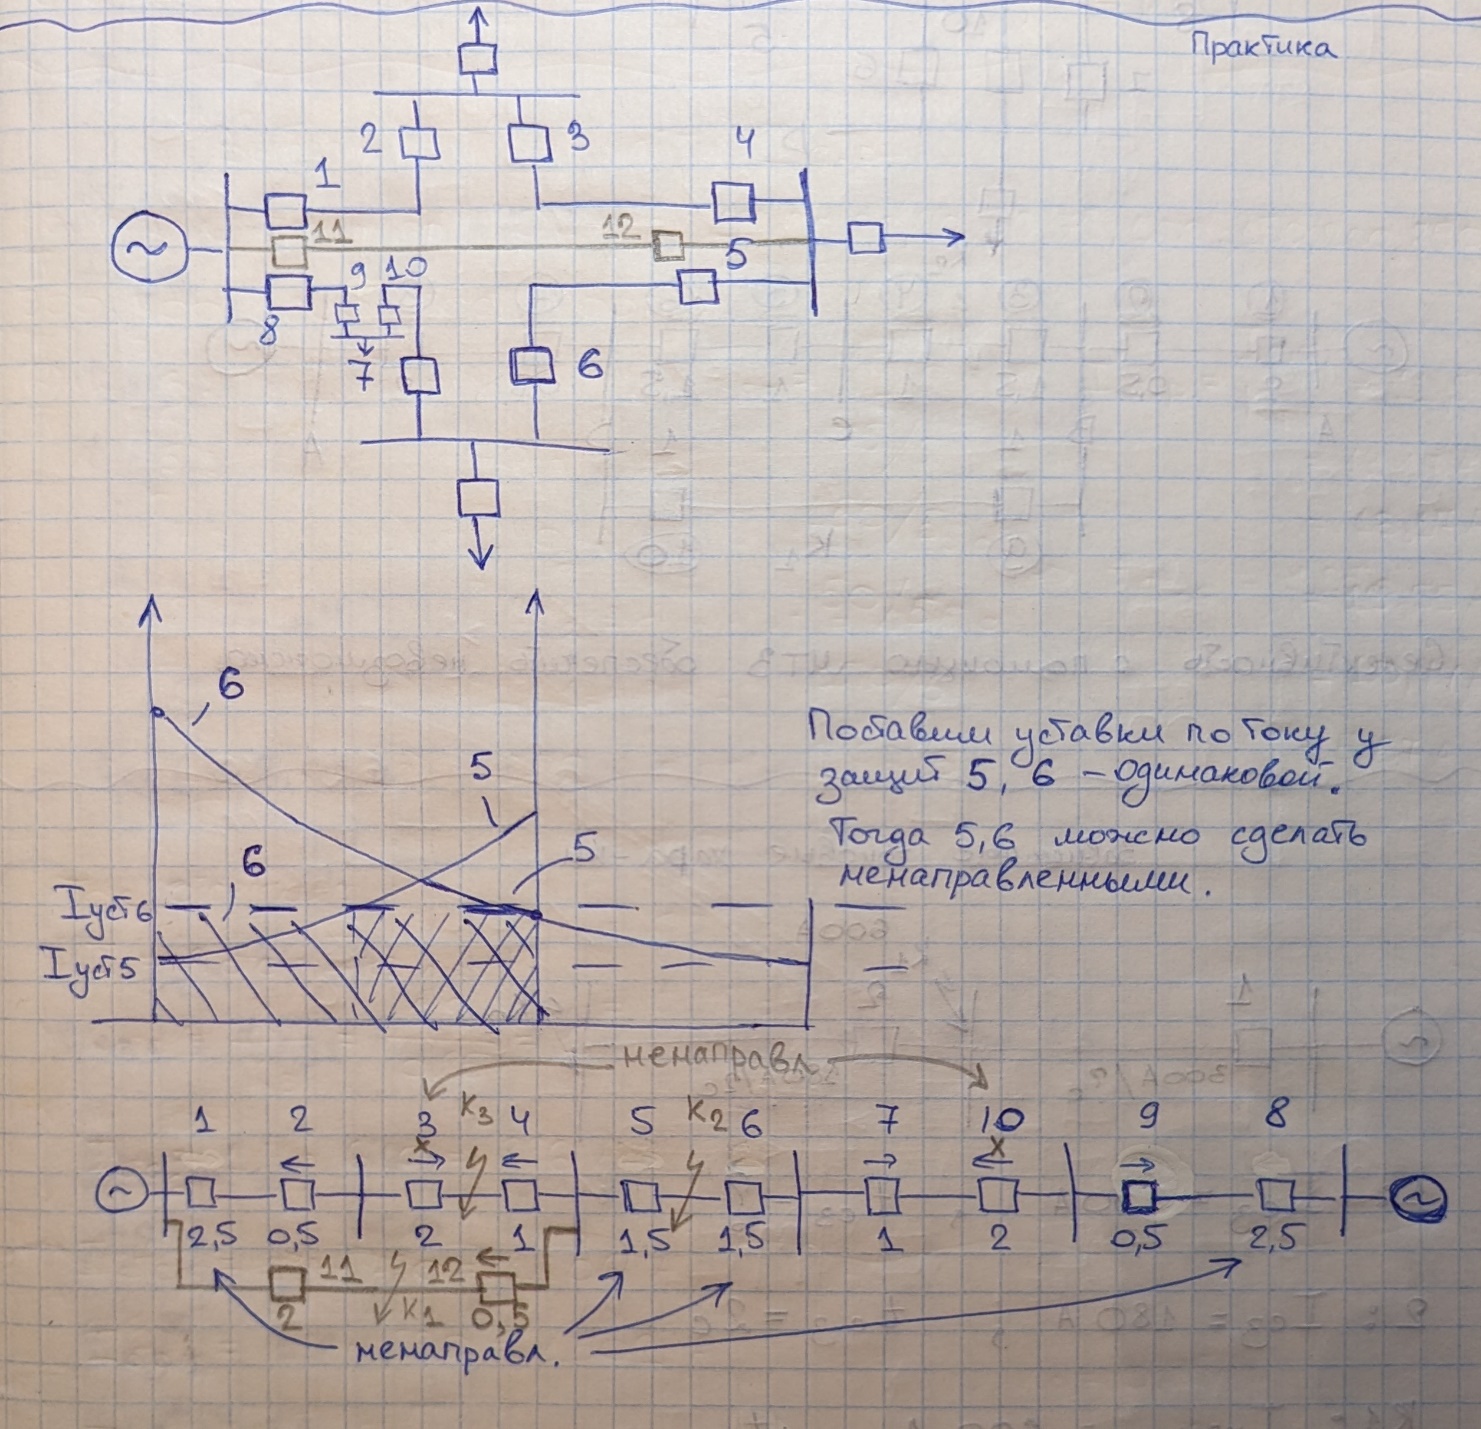 Практика
2 3 4
1
11 12
5
9 10
8
7 6
6
5
5
6
Iуст6
Iуст5
Поставим уставки по току у
защит 5, 6 – одинаковой.
Тогда 5,6 можно сделать
ненаправленными.
ненаправл.
1 2 3 K3 4 5 K2 6 7 10 9 8
x x
2,5 0,5 2 1 1,5 1,5 1 2 0,5 2,5
11 12
2 K1 0,5
ненаправл.